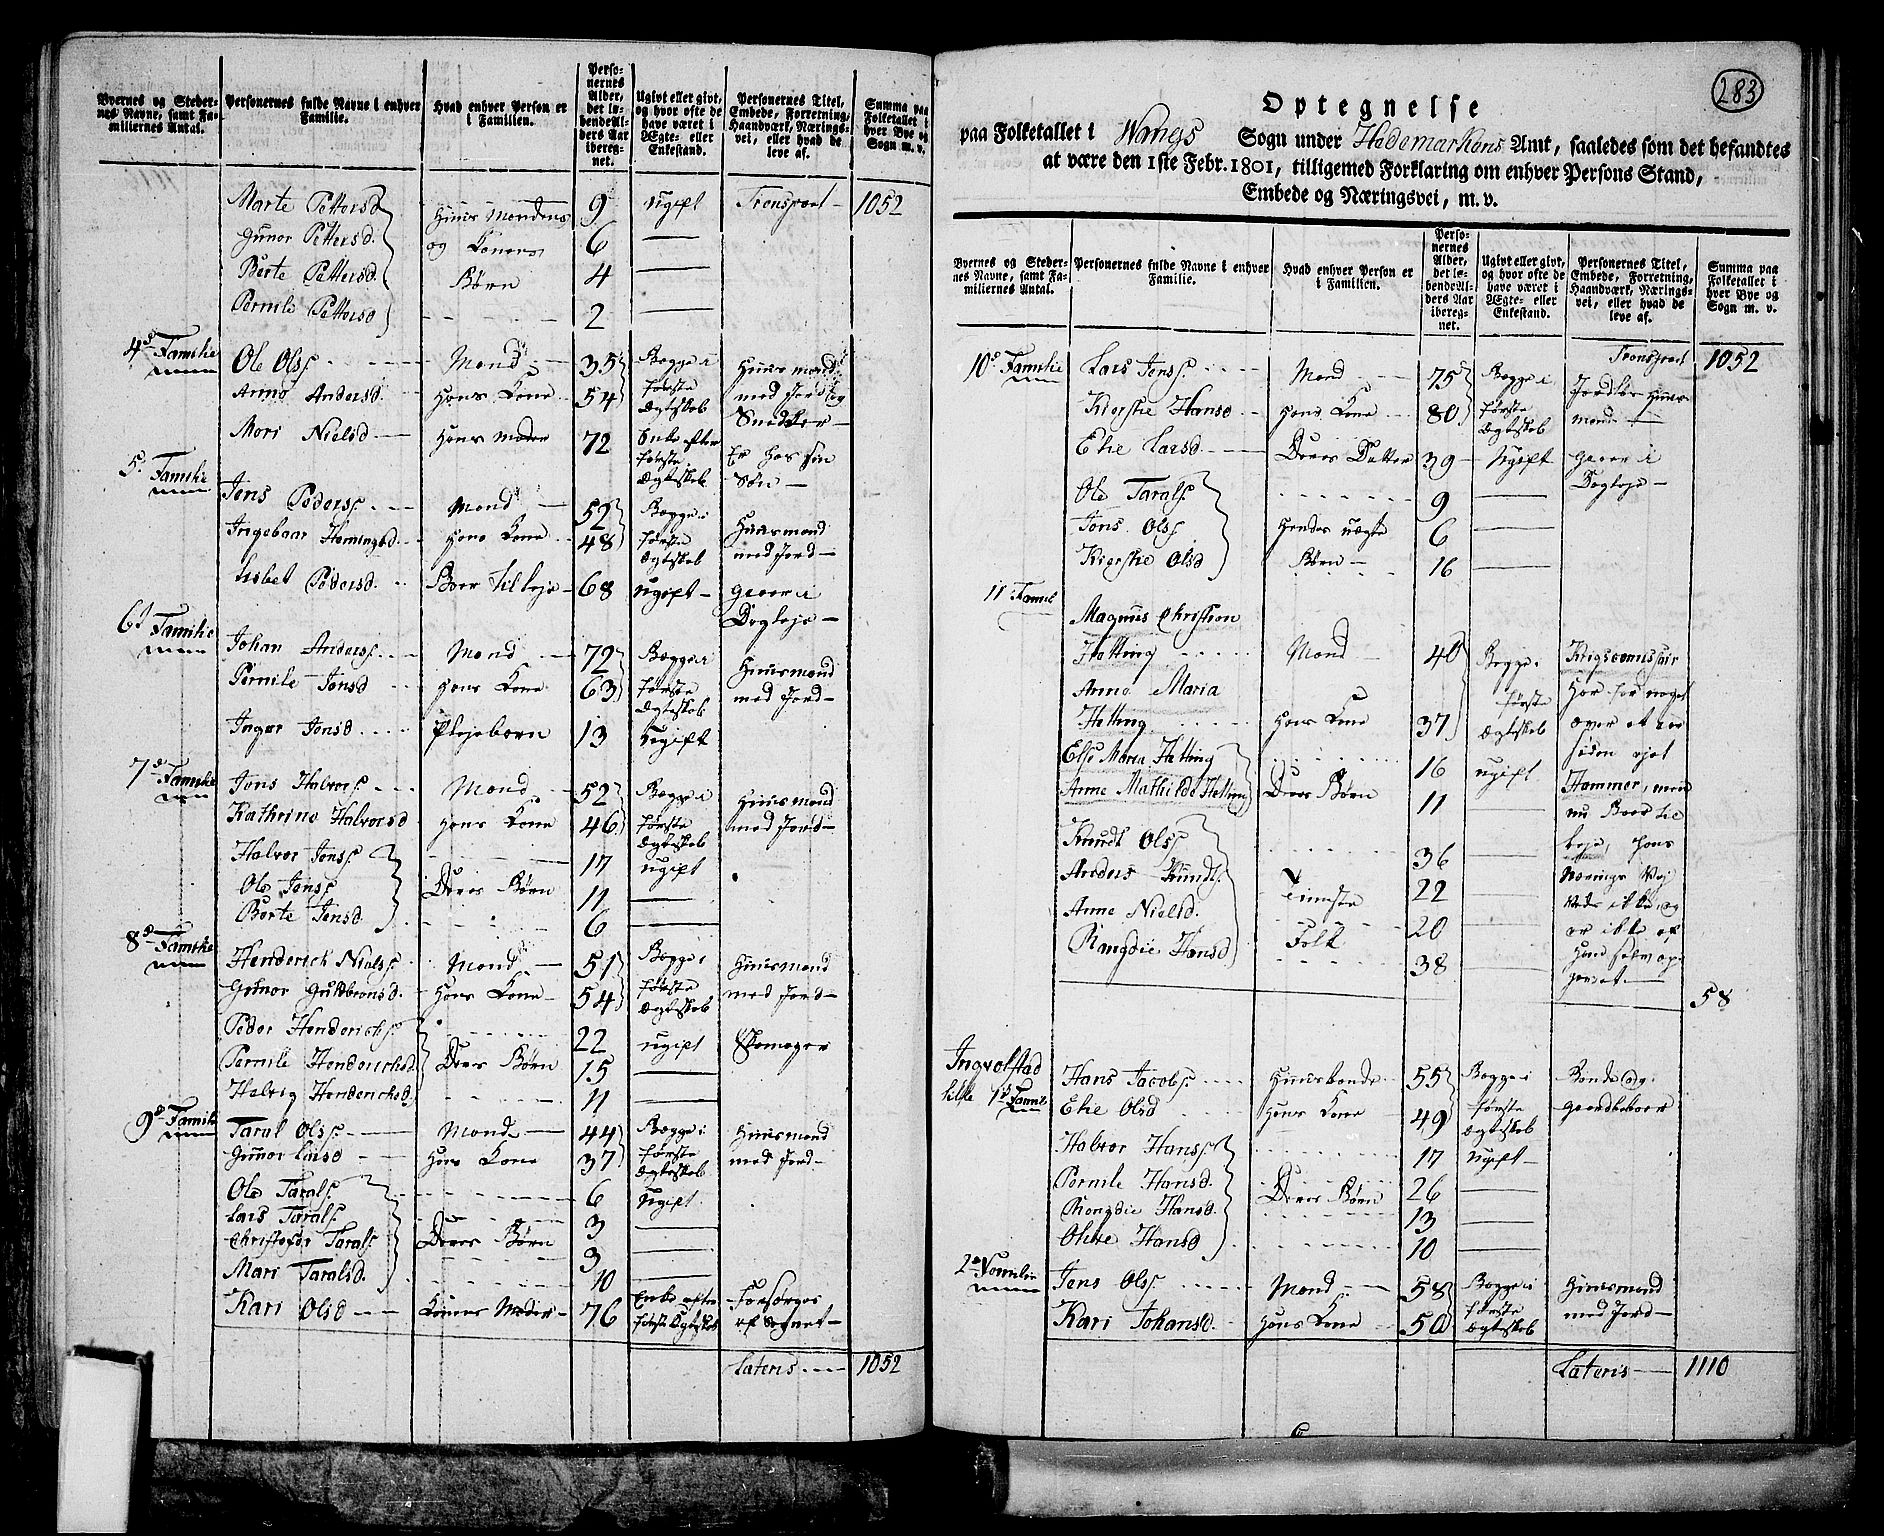 Byernes og Steder-
nes Navne, samt Fa-
miliernes Antal.
Personernes fulde Navne i enhver
Familie.
Hvad enhver Person er
i Familien.
Perso-
nernes
Alder,
det lø-
bende Al-
ders Aar
iberegnet.
Ugivt eller givt,
og hvor ofte de
have været i
Ægte- eller
Enkestand.
Personernes Titel,
Embede, Forretning,
Haandværk, Nærings-
vei, eller hvad de
leve af.
Summa paa
Folketallet i
hver Bye og
Sogn m. v.
Marte Pettersd 9 ugift Transport 1052
Gunor Pettersd. og Koners 6
Berte Pettersd. Børn 4
Pernile Pettersd 2
4d Familie Ole Olss. Mand 35 Begge i
Anne Andersd. Hans Kone 54 første Ægteskab
Huusmand med Jord og Snedker
Mari Nielsd Hans Moder 72 Enke efter første Ægteskab
Er hos sin Søn
5. Familie Jens Peders. Mand 52 Begge i
Hans Kone 48 første Ægteskab
Huusmand med Jord
Lisbet Pedersd. Boer til Leje 68 ugift
6d Familie Johan Anders. Mand 72 Begge i Huusmand
Pernile Jensd Hans Kone 63 første Ægteskab med Jord
Inger Jensd Plejebarn 13 Ugift
7d Familie Jens Halvors. Mand 52 Begge i Huusmand
Kathrine Halvorsd Hans Kone 46 første Ægteskab med Jord
Halvor Jenss. 17 ugift
Ole Jenss. Deres Børn 11
Berte Jensd. 6
8d Familie Henderich Niels. Mand 51 Begge i Huusmand
Gunor Guldbransd. Hans Kone 54 første Ægteskab med Jord
Peder Henderichs. 22 ugift Skomager
Pernile Henderichsd Deres Børn 15
Helvig Henderichsd 11
9d Familie Taral Olss. Mand 44 Begge i Huusmand
Gunor Larsd Hans Kone 37 første Ægteskab med Jord
Ole Tarals. 6 Ugift
Lars Tarals. 3
Christofer Tarals. Deres Børn 3
Mari Taralsd. 10
Kari Olsd Konens Moder 76 Enke efter første Ægteskab Forsørges af Sognet
Lateris 1052
283
Optegnelse
paa Folketallet i Wangs Sogn under Hedemarkens Amt, saaledes som det befandtes
at være den 1ste Febr. 1801, tilligemed Forklaring om enhver Persons Stand,
Embede og Næringsvei, m. v.
Byernes og Steder-
nes Navne, samt Fa-
miliernes Antal.
Personernes fulde Navne i enhver
Familie.
Hvad enhver Person er
i Familien.
Perso-
nernes
Alder,
det lø-
bende Al-
ders Aar
iberegnet.
Ugivt eller givt,
og hvor ofte de
have været i
Ægte- eller
Enkestand.
Personernes Titel,
Embede, Forretning,
Haandværk, Nærings-
vei, eller hvad de
leve af.
Summa paa
Folketallet i
hver Bye og
Sogn m. v.
Transport 1052
10d Familie Lars Jens. Mand 75 Begge i
Kierstie Hansd Hans Kone 80 første Ægteskab
Elie Larsd Deres Datter 39 Ugift
Ole Tarals. 9
Jens Ols. Hendes uægte 6
Kierstie Olsd Børn 16
11 Famil
Magnus Christian
Hetting Mand 40 Begge i
Anne Maria
Hetting Hans Kone 37 første Ægteskab
Har for noget
over et aar
siden ejet
Hammer, men
Else Maria Hetting 16 ugift
Anne Mathilde Hetting Deres Børn 11
Knudt Olss. 36
Anders Knudts. Tieneste 22
Anne Nielsd. Folk 20
Rangdie Hansd 38
58
Ingvolstad
lille 1d Famil Hans Jacobs. Huusbonde 55 Begge i Bonde og
Elie Olsd Hans Kone 49 første Ægteskab Gaardbeboer
Halvor Hans. 17 ugift
Pernile Hansd. Deres Børn 26
Rangdie Hansd. 13
Olive Hansd 10
2d Familie Jens Olss. Mand 58 Begge i Huusmand
Kari Johansd. Hans Kone 50 første Ægteskab med Jord
Lateris 1110